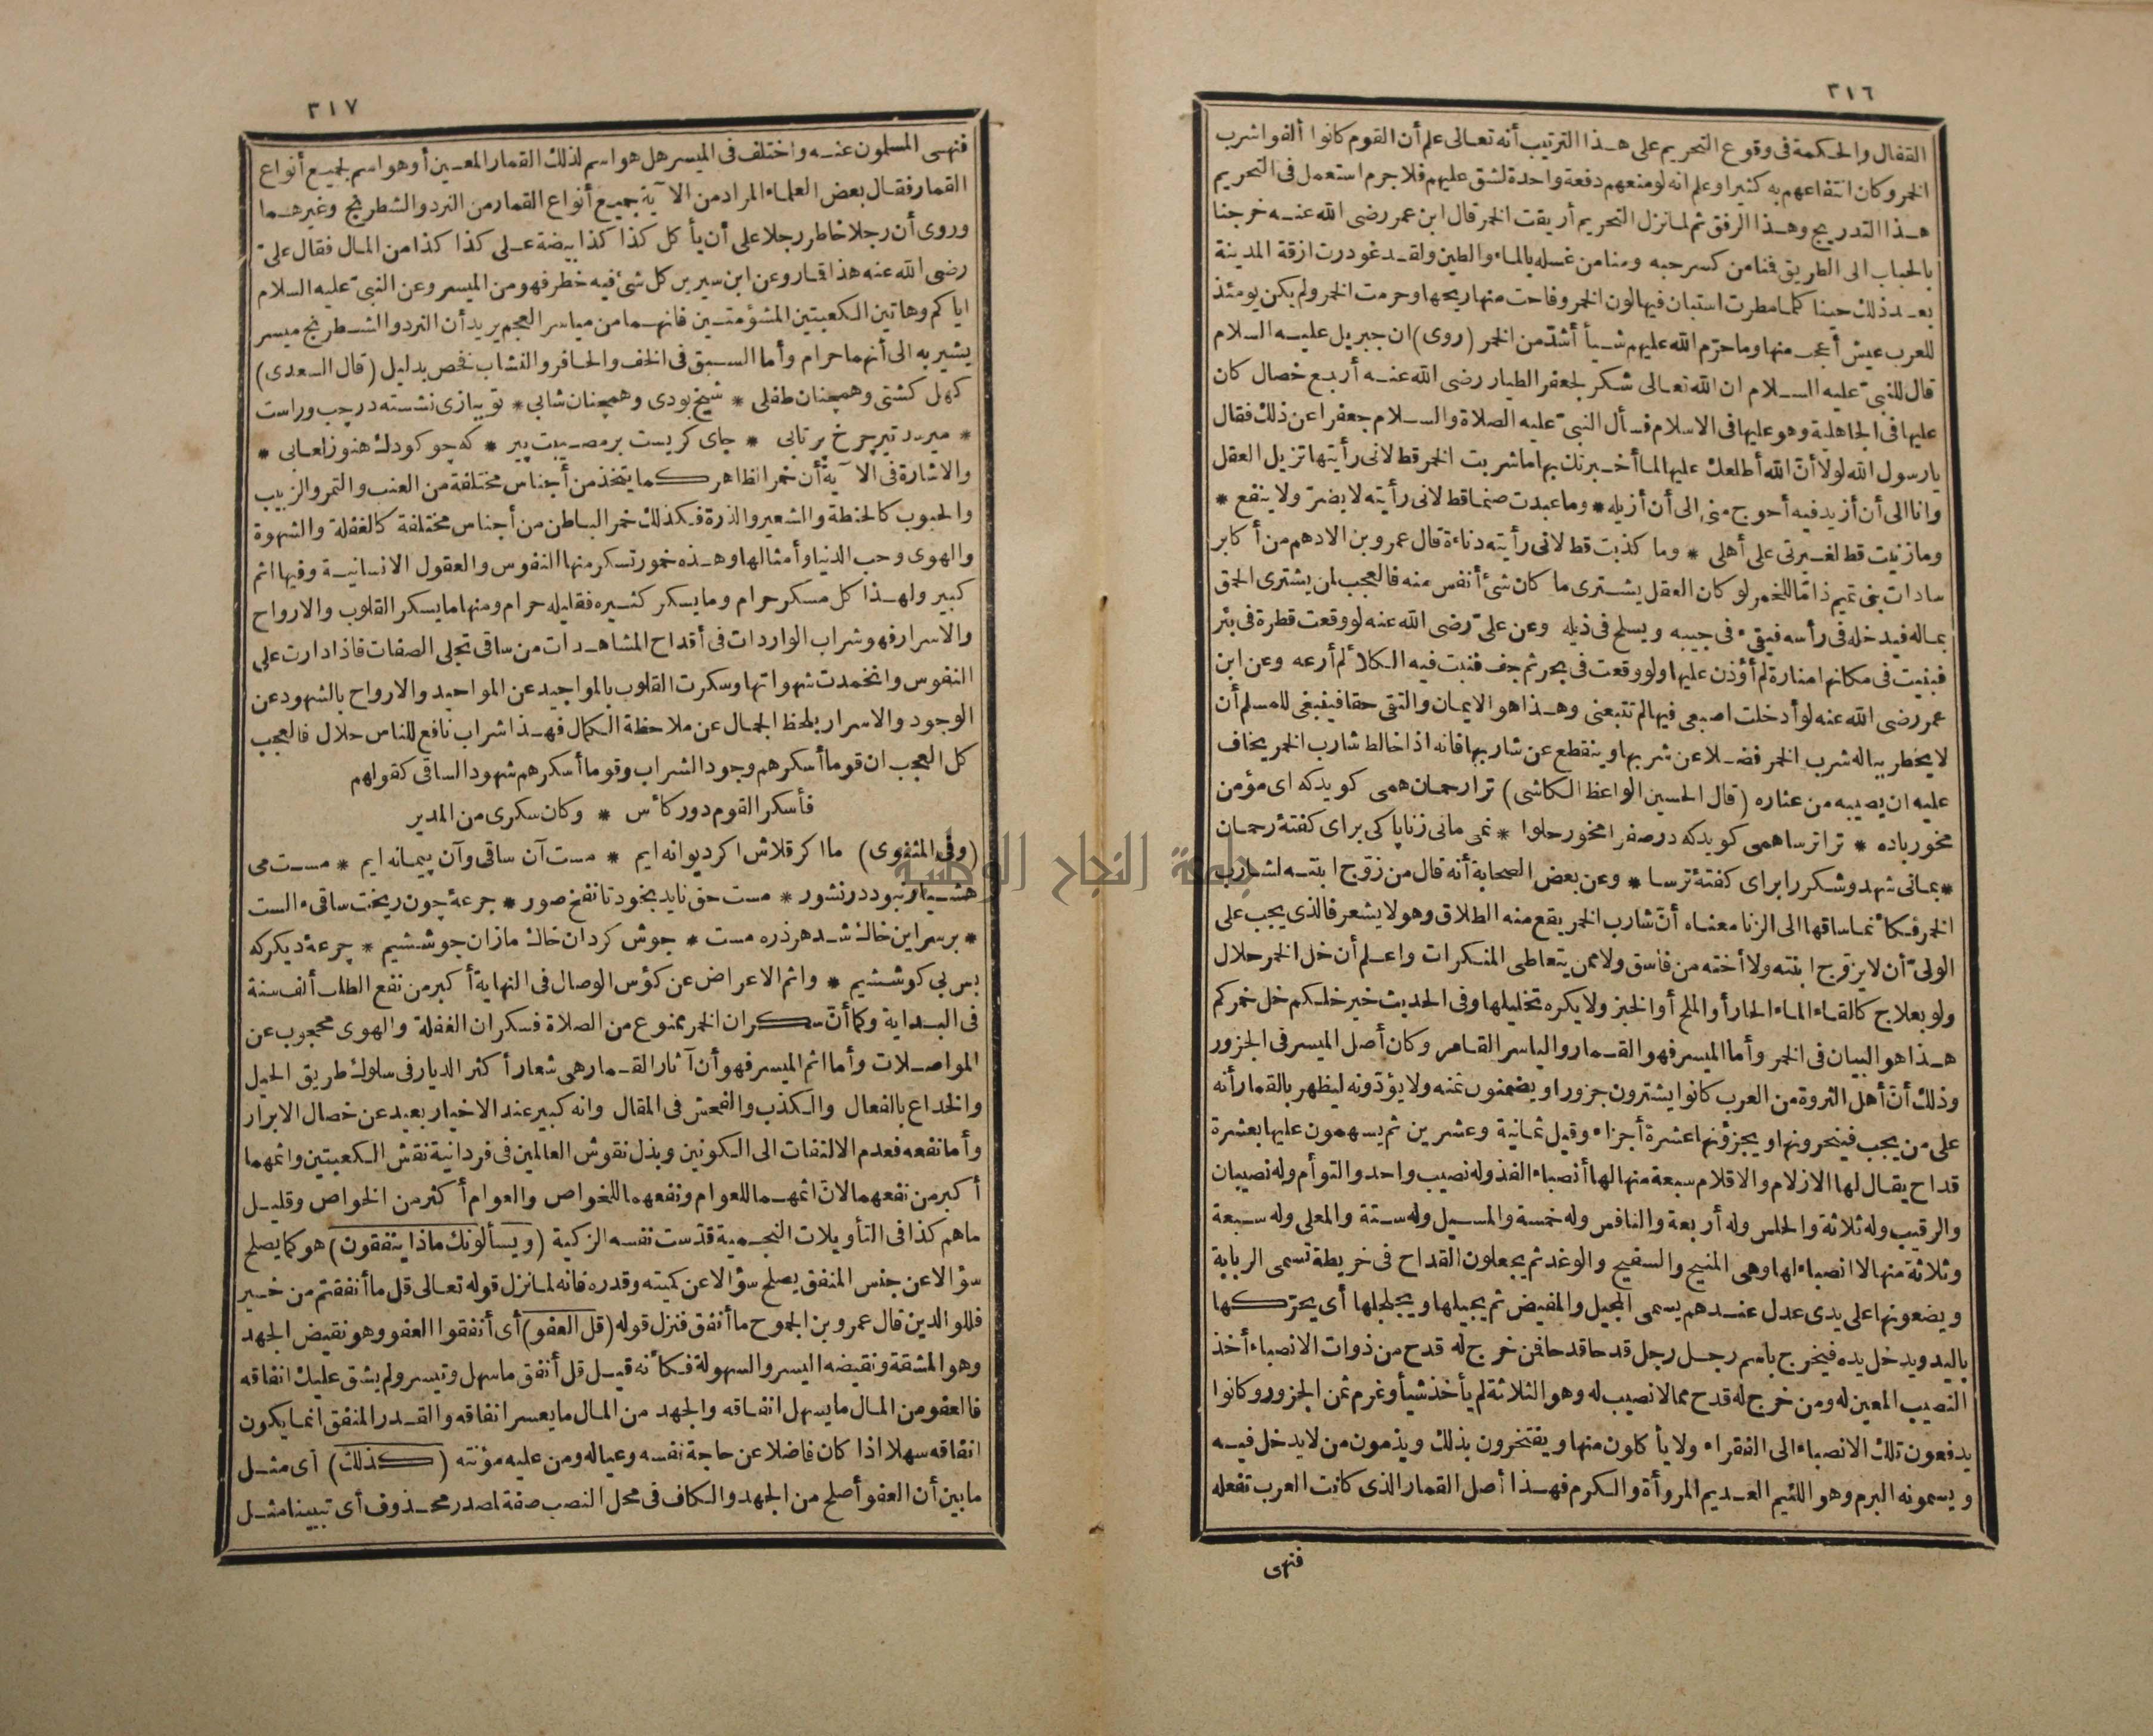 ٣١٦
القفال والحكمة فى وقوع التحريم على هذا الترتيب أنه تعالى علم أن القوم كانوا ألفوا شرب
الخمر وكان انتفاعهم به كثيرا وعلم انه لو منعهم دفعة واحدة لشق عليهم فلا جرم استعمل فى التحريم
هذا التدريج وهذا الرفق ثم لما نزل التحريم أريقت الخمر قال ابن عمر رضى الله عنه خرجنا
بالحباب الى الطريق فمنا من كسر حبه ومنا من غسله بالماء والطين ولقد غودرت ازقة المدينة
بعد ذلك حينا كلما مطرت استبان فيها لون الخمر وفاحت منها ريحها وحرمت الخمر ولم يكن يومئذ
للعرب عيش أعجب منها وما حرّم الله عليهم شيأ أشدّ من الخمر (روى) ان جبريل عليه السلام
قال للنبىّ عليه السلام ان الله تعالى شكر لجعفر الطيار رضى الله عنه أربع خصال كان
عليها فى الجاهلية وهو عليها فى الاسلام فسأل النبىّ عليه الصلاة والسلام جعفرا عن ذلك فقال
يا رسول الله لولا أنّ الله أطلعك عليها لما أخبرتك بها ما شربت الخمر قط لانى رأيتها تزيل العقل
وانا الى أن أزيد فيه أحوج منى الى أن أزيله * وما عبدت صنما قط لانى رأيته لا يضرّ ولا ينفع *
وما زنيت قط لغيرتى على أهلى * وما كذبت قط لانى رأيته دناءة قال عمرو بن الادهم من أكابر
سادات بنى تميم ذامّا للخمر لو كان العقل يشترى ما كان شئ أنفس منه فالعجب لمن يشترى الحمق
بماله فيدخله فى رأسه فيقىء فى جيبه ويسلح فى ذيله وعن علىّ رضى الله عنه لو وقعت قطرة فى بئر
فبنيت فى مكانها منارة لم أؤذن عليها ولو وقعت فى بحر ثم جف فنبت فيه الكلأ لم أرعه وعن ابن
عمر رضى الله عنه لو أدخلت اصبعى فيها لم تتبعنى وهذا هو الايمان والتقى حقا فينبغى للمسلم أن
لا يخطر بباله شرب الخمر فضلا عن شربها وينقطع عن شاربها فانه اذا خالط شارب الخمر يخاف
عليه ان يصيبه من عثاره (قال الحسين الواعظ الكاشى) ترا رحمان همى كويد كه اى مؤمن
مخور باده * ترا ترسا همى كويد كه در صفرا مخور حلوا * نمى مانى زنا پاكى براى كفتۀ رحمان
* بمانى شهد وشكر را براى كفتۀ ترسا * وعن بعض الصحابة أنه قال من زوّج ابنته لشارب
الخمر فكأنما ساقها الى الزنا معناه أنّ شارب الخمر يقع منه الطلاق وهو لا يشعر فالذى يجب على
الولىّ أن لا يزوّج ابنته ولا أخته من فاسق ولا ممن يتعاطى المنكرات واعلم أن خل الخمر حلال
ولو بعلاج كالقاء الماء الحار أو الملح أو الخبز ولا يكره تخليلها وفى الحديث خير خلكم خل خمركم
هذا هو البيان فى الخمر وأما الميسر فهو القمار والياسر القامر وكان أصل الميسر فى الجزور
وذلك أنّ أهل الثروة من العرب كانوا يشترون جزورا ويضمنون ثمنه ولا يؤدّونه ليظهر بالقمار أنه
على من يجب فينحرونها ويجزؤنها عشرة أجزاء وقيل ثمانية وعشرين ثم يسهمون عليها بعشرة
قداح يقال لها الازلام والاقلام سبعة منها لها أنصباء الفذ وله نصيب واحد والتوأم وله نصيبان
والرقيب وله ثلاثة والحلس وله أربعة والنافس وله خمسة والمسبل وله ستة والمعلى وله سبعة
وثلاثة منها لا انصباء لها وهى المنيح والسفيح والوغد ثم يجعلون القداح فى خريطة تسمى الربابة
ويضعونها على يدى عدل عندهم يسمى المجيل والمفيض ثم يجيلها ويجلجلها أى يحرّكها
باليد ويدخل يده فيخرج باسم رجل رجل قدحا قدحا فمن خرج له قدح من ذوات الانصباء أخذ
النصيب المعين له ومن خرج له قدح مما لا نصيب له وهو الثلاثة لم يأخذ شيأ وغرم ثمن الجزور وكانوا
يدفعون تلك الانصباء الى الفقراء ولا يأكلون منها ويفتخرون بذلك ويذمون من لا يدخل فيه
ويسمونه البرم وهو اللئيم العديم المروأة والكرم فهذا أصل القمار الذى كانت العرب تفعله
فنهى
٣١٧
فنهى المسلمون عنه واختلف فى الميسر هل هو اسم لذلك القمار المعين أو هو اسم لجميع أنواع
القمار فقال بعض العلماء المراد من الآية جميع أنواع القمار من النرد والشطرنج وغيرهما
وروى أن رجلا خاطر رجلا على أن يأكل كذا كذا بيضة على كذا كذا من المال فقال علىّ
رضى الله عنه هذا قمار وعن ابن سيرين كل شئ فيه خطر فهو من الميسر وعن النبىّ عليه السلام
اياكم وهاتين الكعبتين المشؤمتين فانهما من مياسر العجم يريد أن النرد والشطرنج ميسر
يشير به الى أنهما حرام وأما السبق فى الخف والحافر والنشاب فخص بدليل (قال السعدى)
كهل كشتى وهمچنان طفلى * شيخ بودى وهمچنان شابى * تو ببازى نشسته در چپ وراست
* ميرد تير چرخ پرتابى * جاى كريست بر مصيبت پير * كه چو كودك هنوز لعابى *
والاشارة فى الآية أن خمر الظاهر كما يتخذ من أجناس مختلفة من العنب والتمر والزبيب
والحبوب كالحنطة والشعير والذرة فكذلك خمر الباطن من أجناس مختلفة كالغفلة والشهوة
والهوى وحب الدنيا وأمثالها وهذه خمور تسكر منها النفوس والعقول الانسانية وفيها اثم
كبير ولهذا كل مسكر حرام وما يسكر كثيره فقليله حرام ومنها ما يسكر القلوب والارواح
والاسرار فهو شراب الواردات فى أقداح المشاهدات من ساقى تجلى الصفات فاذا دارت على
النفوس وانخمدت شهواتها وسكرت القلوب بالمواجيد عن المواحيد والارواح بالشهود عن
الوجود والاسرار بلحظ الجمال عن ملاحظة الكمال فهذا شراب نافع للناس حلال فالعجب
كل العجب ان قوما أسكرهم وجود الشراب وقوما أسكرهم شهود الساقى كقولهم
فأسكر القوم دور كأس * وكان سكرى من المدير
(وفى المثنوى) ما اكر قلاش اكر ديوانه ايم * مست آن ساقى وآن پيمانه ايم * مست مى
هشيار نبود در نشور * مست حق نايد بخود تا نفخ صور * جرعۀ چون ريخت ساقىء الست
* بر سر اين خاك شد هر ذره مست * جوش كرد آن خاك ما زان جوششيم * جرعۀ ديكر كه
بس بى كوششيم * واثم الاعراض عن كؤس الوصال فى النهاية أكبر من نفع الطلب ألف سنة
فى البداية وكما أنّ سكران الخمر ممنوع من الصلاة فسكران الغفلة والهوى محجوب عن
المواصلات وأما اثم الميسر فهو أن آثار القمار هى شعار أكثر الديار فى سلوك طريق الحيل
والخداع بالفعال والكذب والفحش فى المقال وانه كبير عند الاخيار بعيد عن خصال الابرار
وأما نفعه فعدم الالتفات الى الكونين وبذل نقوش العالمين فى فردانية نقش الكعبتين واثمهما
أكبر من نفعهما لانّ اثمهما للعوام ونفعهما للخواص والعوام أكثر من الخواص وقليل
ما هم كذا فى التأويلات النجمية قدّست نفسه الزكية (ويسألونك ماذا ينفقون) هو كما يصلح
سؤالا عن جنس المنفق يصلح سؤالا عن كميته وقدره فانه لما نزل قوله تعالى قل ما أنفقتم من خير
فللوالدين قال عمرو بن الجموح ما أنفق فنزل قوله (قل العفو) أى أنفقوا العفو وهو نقيض الجهد
وهو المشقة ونقيضه اليسر والسهولة فكأنه قيل قل أنفق ما سهل وتيسر ولم يشق عليك انفاقه
فالعفو من المال ما يسهل انفاقه والجهد من المال ما يعسر انفاقه والقدر المنفق انما يكون
انفاقه سهلا اذا كان فاضلا عن حاجة نفسه وعياله ومن عليه مؤنته (كذلك) أى مثل
ما بين أن العفو أصلح من الجهد والكاف فى محل النصب صفة لمصدر محذوف أى تبيينا مثل
جامعة النجاح الوطنية